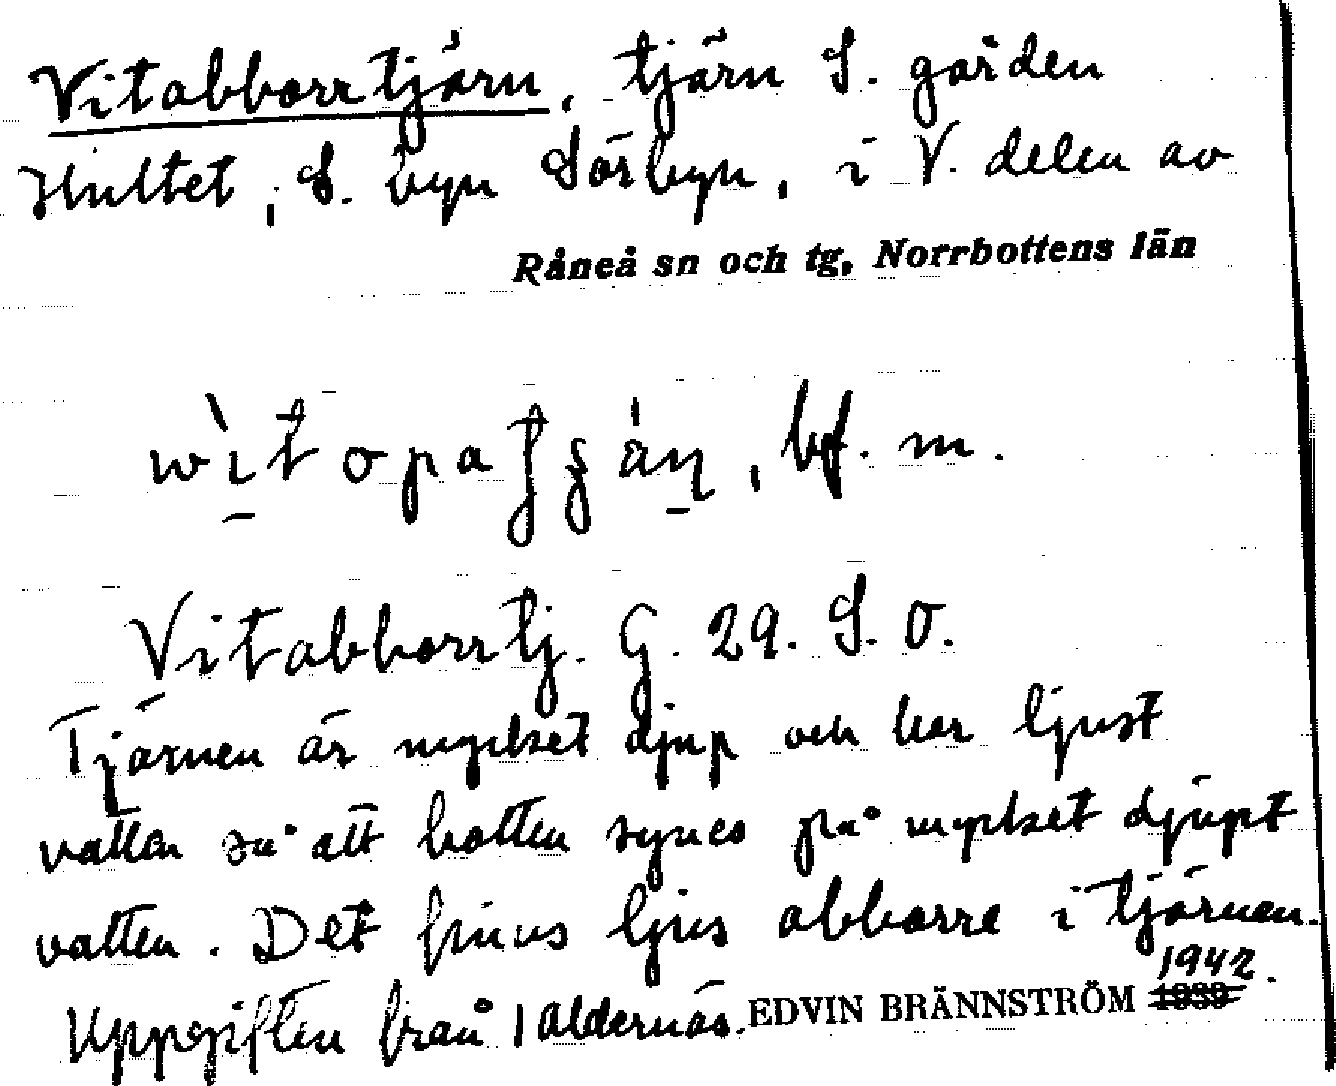 Vitabborrtjärn, tjärn S. gården
Hultet, S. byn Sörbyn, i V. delen av
Råneå sn och tg, Norrbottens län
bf. m.
Vitabborrtj. G. 29. S. O.
Tjärnen är mycket djup och har ljust
vatten så att botten synes på mycket djupt
vatten. Det finns ljus abborre i tjärnen.
Uppgiften från EDVIN BRÄNNSTRÖM 1942.